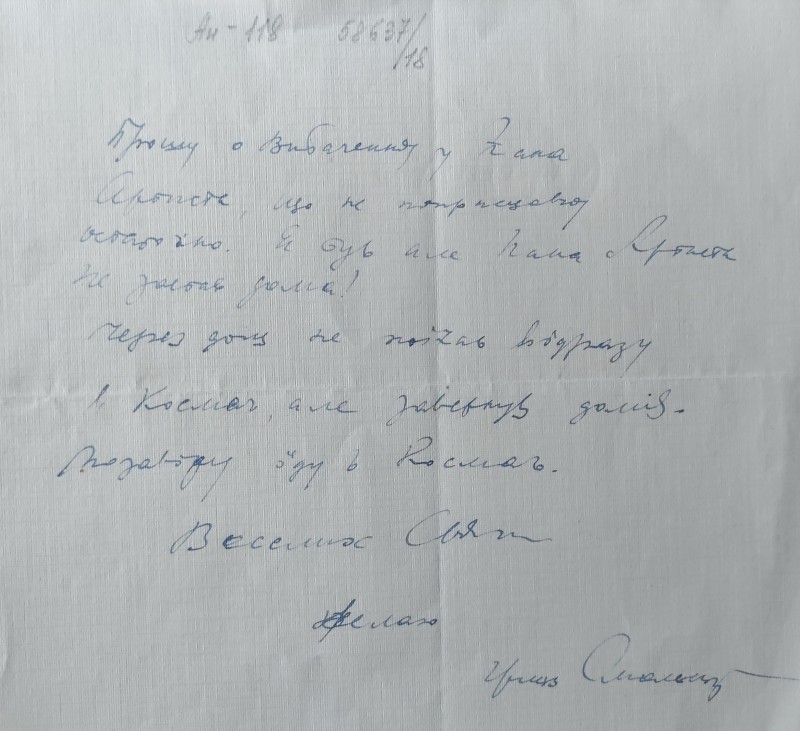 Ан-118 58637/18
Прошу о вибачення у Пана
Артиста, що не попрощався
остаточно. Я був але Пана Артиста
не застав дома!
Через дощ не поїхав відразу
в Космач, але завернув домів.
Позавтру їду в Космач.
Веселих Свят
желаю
Гриць Смольський